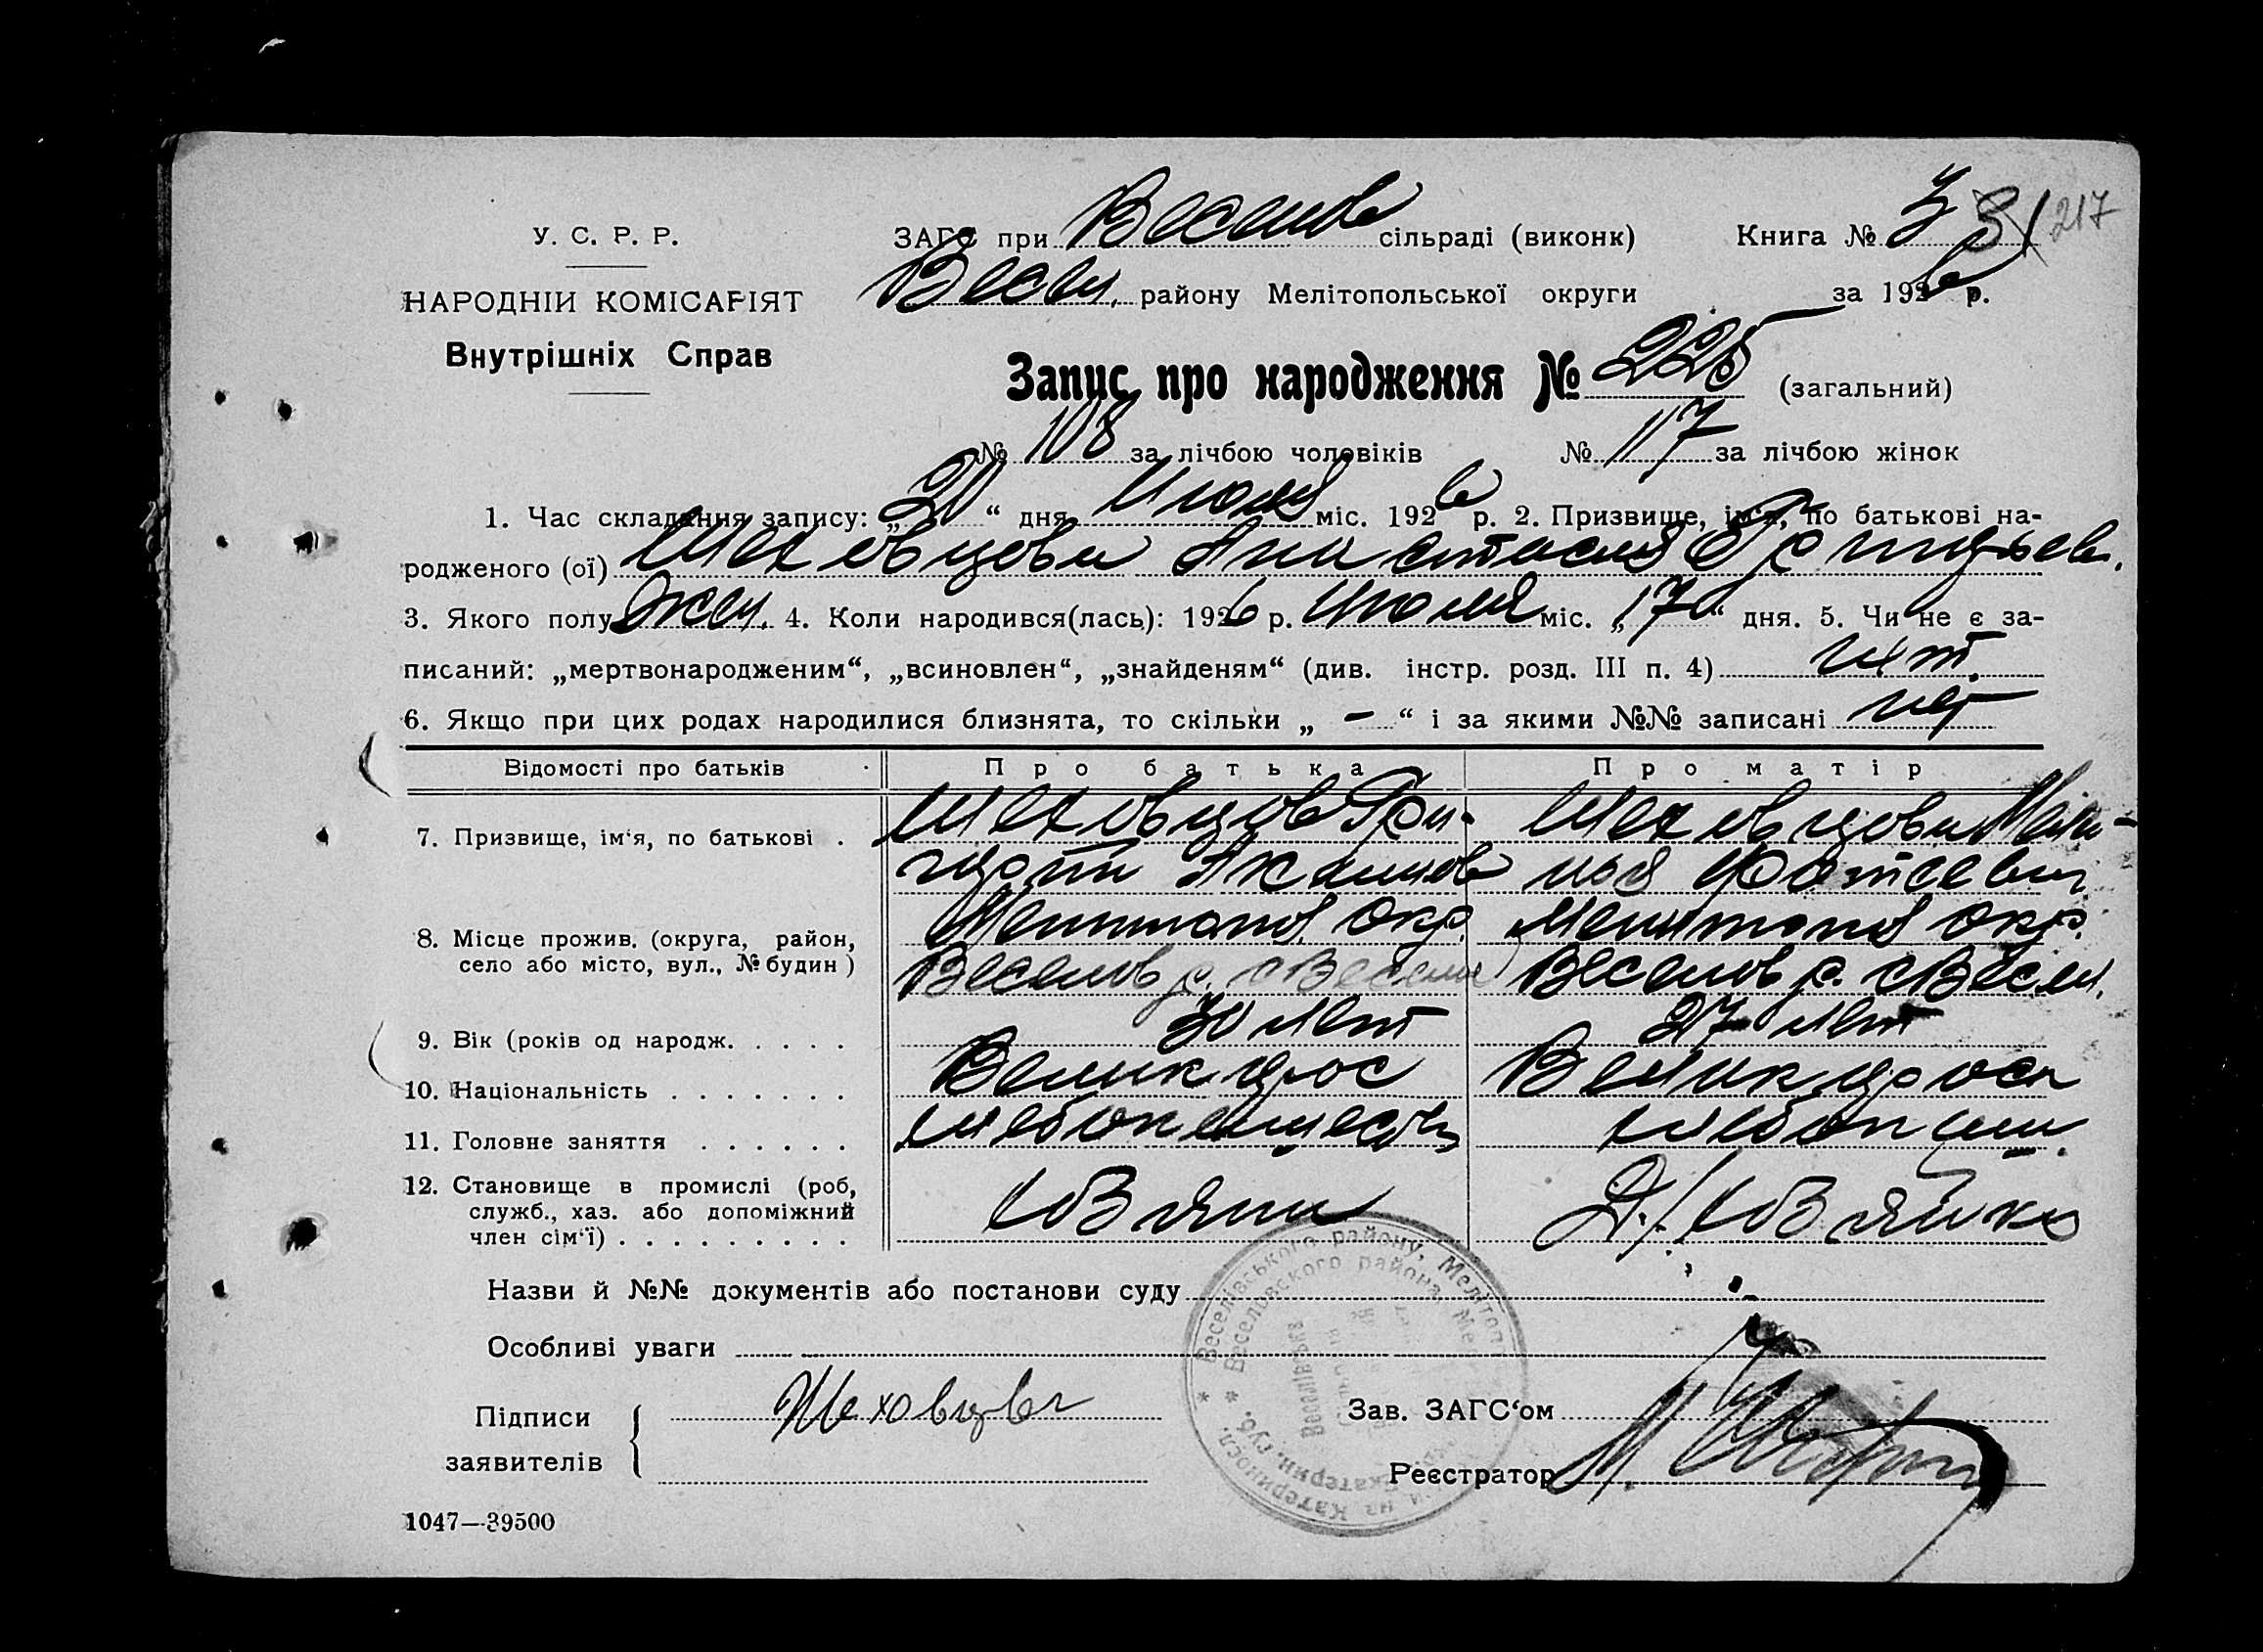 У. С. Р. Р.
НАРОДНІЙ КОМІСАРІЯТ
Внутрішніх Справ
ЗАГС при Веселов сільраді (виконк) Книга № 3 217
Весел. району Мелітопольської округи за 1926 р.
Запис про народження № 225 (загальний)
№ 108 за лічбою чоловіків № 117 за лічбою жінок
1. Час складання запису: „20“ дня Июля міс. 1926 р. 2. Призвище, ім'я, по батькові на-
родженого (ої) Шеховцова Анастасия Григорьев.
3. Якого полу жен. 4. Коли народився(лась): 1926 р. Июля міс. „17“ дня. 5. Чи не є за-
писаний: „мертвонародженим“, „всиновлен“, „знайденям“ (див. інстр. розд. III п. 4) нет.
6. Якщо при цих родах народилися близнята, то скільки „ - “ і за якими №№ записані нет
Відомості про батьків Про батька Про матір
7. Призвище, ім‘я, по батькові . Шеховцов Гри- Шеховцова Мела-
горий нья
8. Місце прожив. (округа, район, село або місто, вул., № будин) Мелитопол. Окр. Мелитопол Окр.
Веселов р. с Весели Веселов р. с Весел.
9. Вік (років од народж. . . . . 30 лет 27 лет
10. Національність . . . . . . . Великорос Великоросс
11. Головне заняття . . . . . . хлебопашест хлебопаш.
12. Становище в промислі (роб, служб., хаз. або допоміжний член сім‘ї) . . . . . . . . . Хозяин Хозяйка
Назви й №№ документів або постанови суду
Особливі уваги
Підписи заявителів Шеховцов
Зав. ЗАГС‘ом
Реєстратор
Веселівського району, Мелітоп
Веселовского района, Ме
Веселівська
на Катеринослав.
Екатерин. губ.
1047—39500